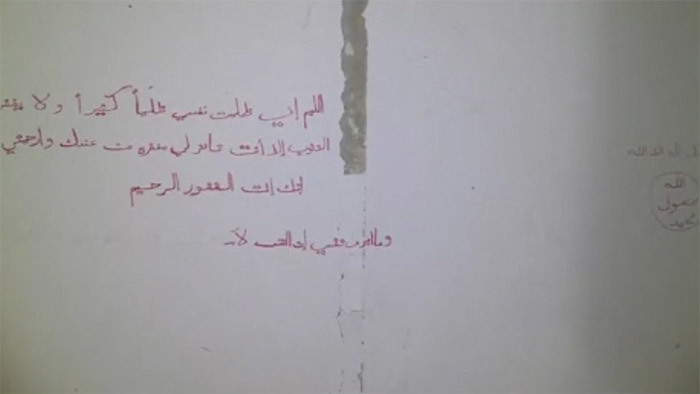 اللهم إني ظلمت نفسي ظلماً كثيراً ولا يغفر
الذنوب إلا أنت فاغفر لي مغفرة من عندك وارحمني
إنك أنت الغفور الرحيم
لا إله إلا الله
الله
رسول
محمد